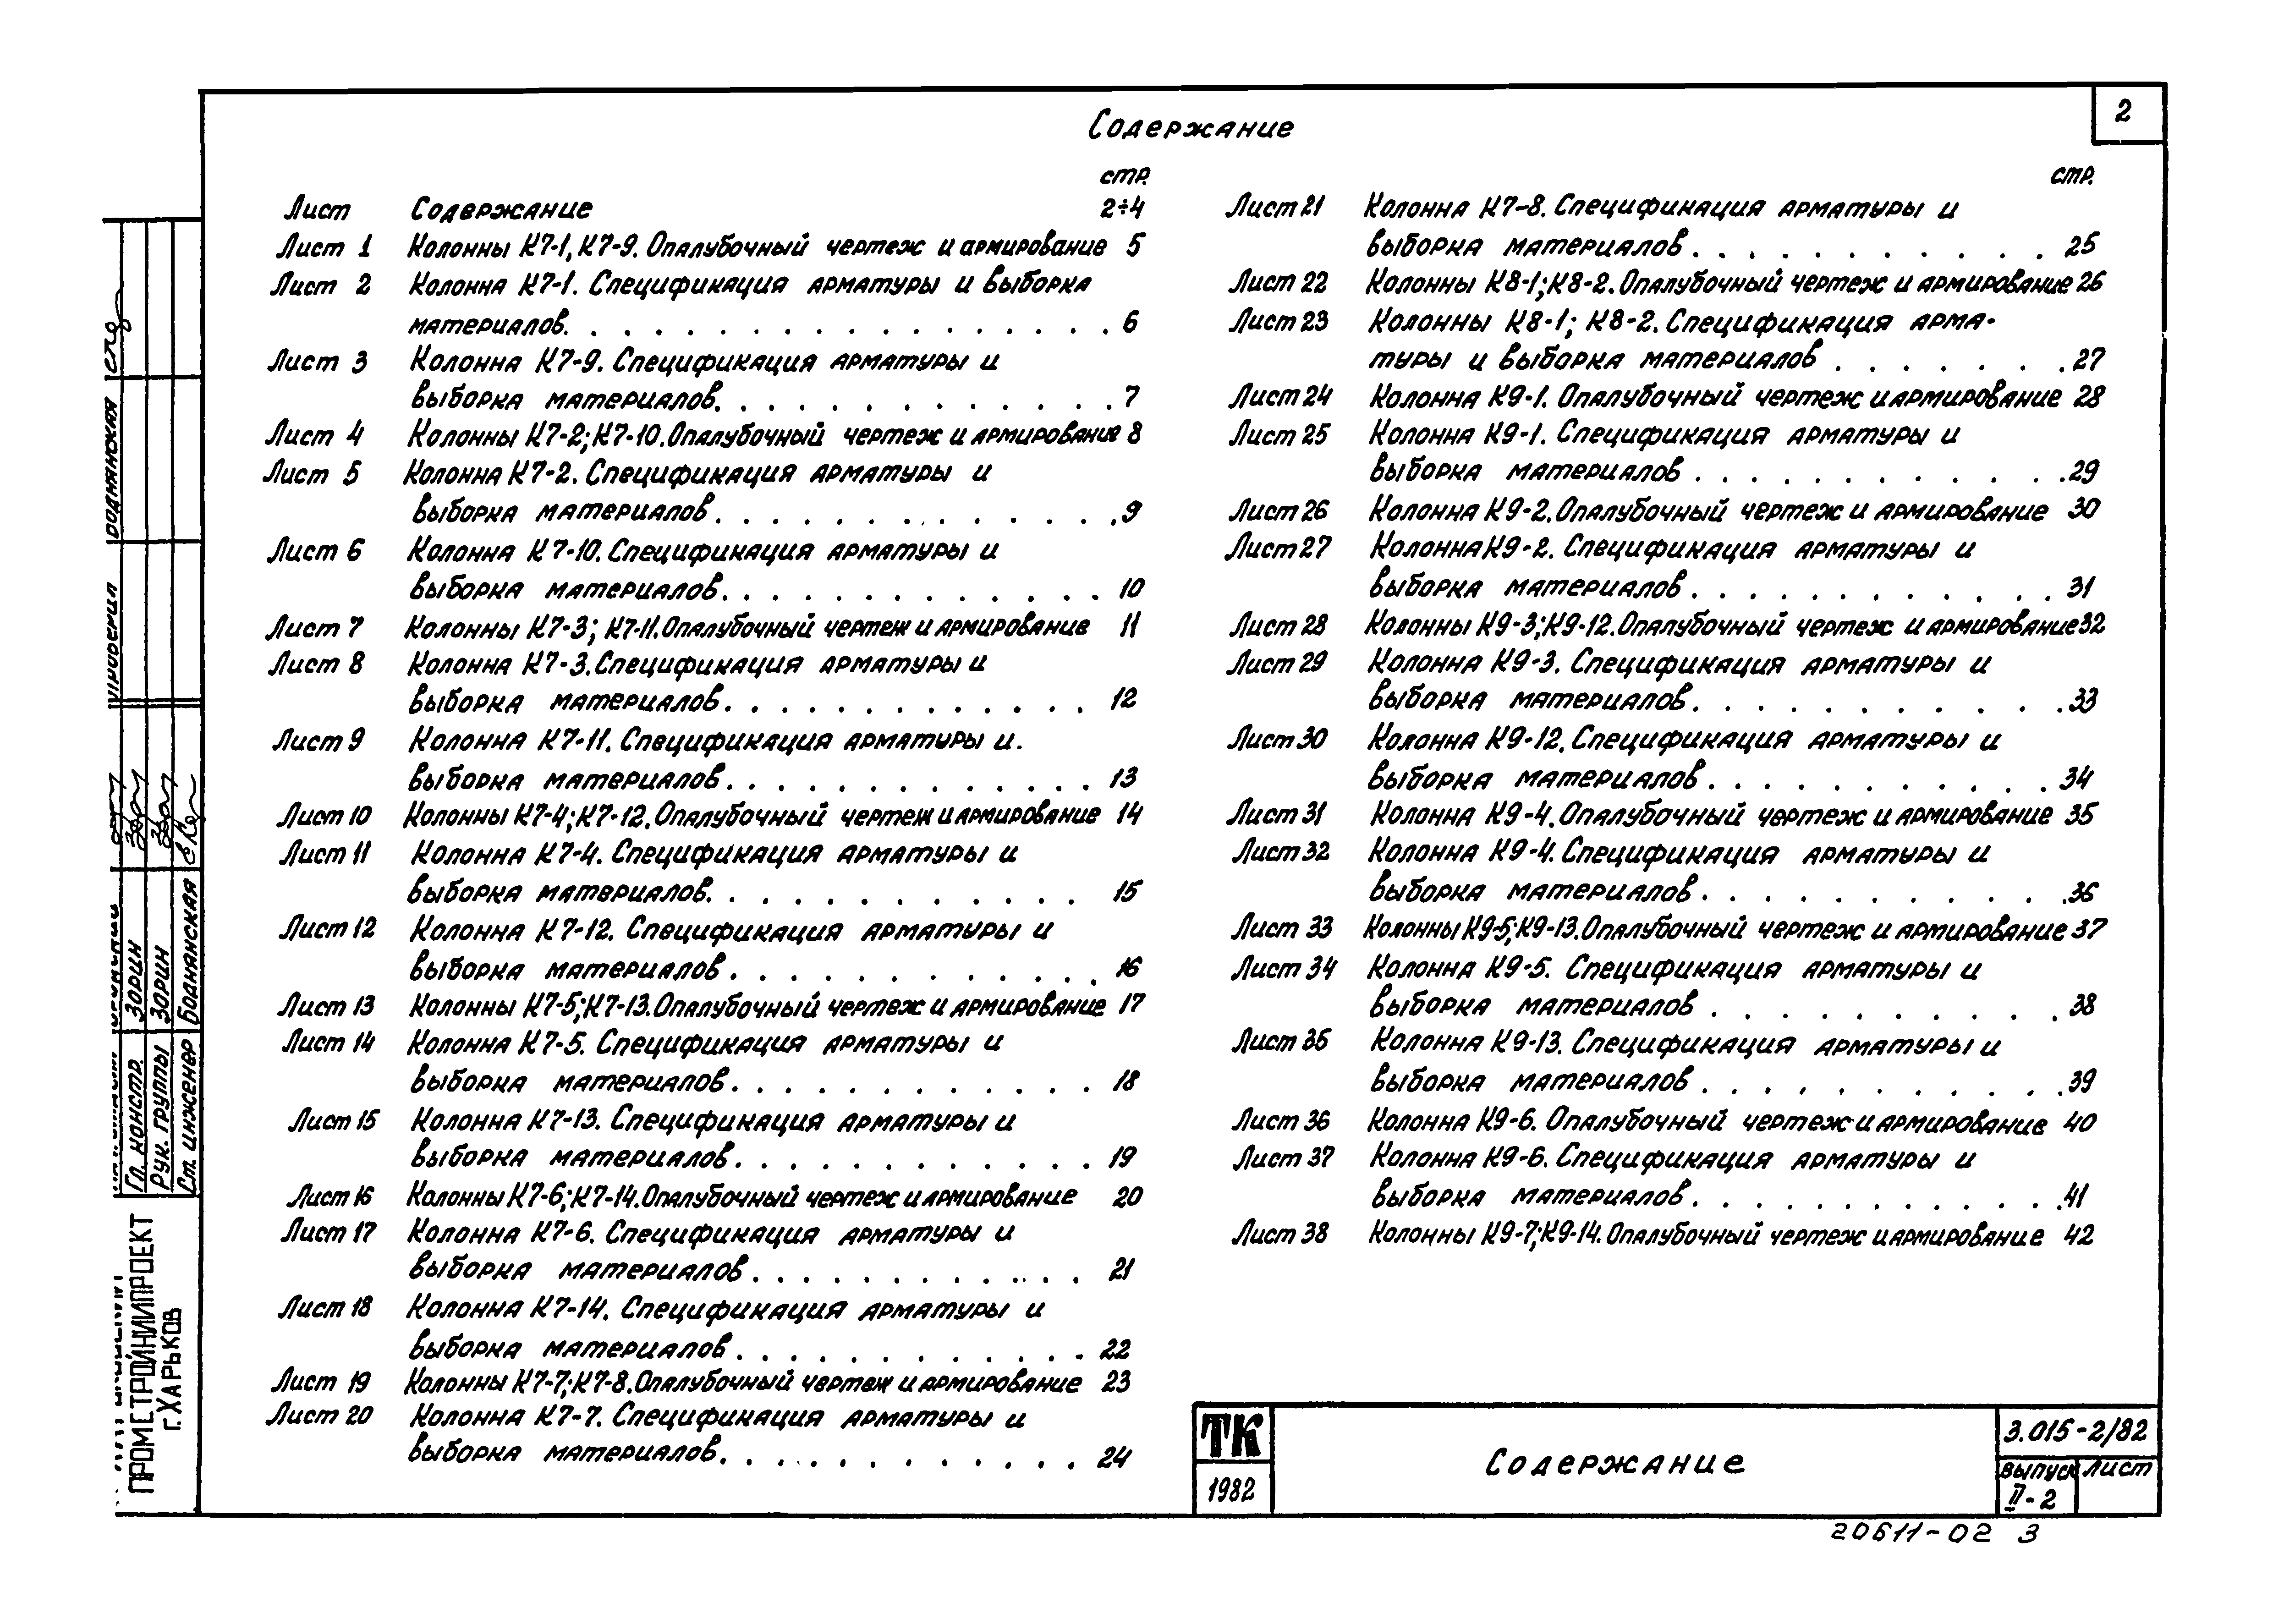 2
Содержание
стр.
Лист Содержание 2÷4
Лист 1 Колонны К7-1, К7-9. Опалубочный чертеж и армирование 5
Лист 2 Колонна К7-1. Спецификация арматуры и выборка
материалов. . . . . . . . . . . . . . . . . . 6
Лист 3 Колонна К7-9. Спецификация арматуры и
выборка материалов. . . . . . . . . . . . . . 7
Лист 4 Колонны К7-2; К7-10. Опалубочный чертеж и армирование 8
Лист 5 Колонна К7-2. Спецификация арматуры и
выборка материалов . . . . . . . . . . . . . . 9
Лист 6 Колонна К7-10. Спецификация арматуры и
выборка материалов . . . . . . . . . . . . . . 10
Лист 7 Колонны К7-3; К7-11. Опалубочный чертеж и армирование 11
Лист 8 Колонна К7-3. Спецификация арматуры и
выборка материалов . . . . . . . . . . . . . 12
Лист 9 Колонна К7-11. Спецификация арматуры и.
выборка материалов . . . . . . . . . . . . . 13
Лист 10 Колонны К7-4; К7-12. Опалубочный чертеж и армирование 14
Лист 11 Колонна К7-4. Спецификация арматуры и
выборка материалов. . . . . . . . . . . . . 15
Лист 12 Колонна К7-12. Спецификация арматуры и
выборка материалов . . . . . . . . . . . . . 16
Лист 13 Колонны К7-5; К7-13. Опалубочный чертеж и армирование 17
Лист 14 Колонна К7-5. Спецификация арматуры и
выборка материалов . . . . . . . . . . . . . 18
Лист 15 Колонна К7-13. Спецификация арматуры и
выборка материалов . . . . . . . . . . . . . 19
Лист 16 Колонны К7-6; К7-14. Опалубочный чертеж и армирование 20
Лист 17 Колонна К7-6. Спецификация арматуры и
выборка материалов . . . . . . . . . . . . 21
Лист 18 Колонна К7-14. Спецификация арматуры и
выборка материалов . . . . . . . . . . . . . 22
Лист 19 Колонны К7-7; К7-8. Опалубочный чертеж и армирование 23
Лист 20 Колонна К7-7. Спецификация арматуры и
выборка материалов . . . . . . . . . . . . . 24
стр.
Лист 21 Колонна К7-8. Спецификация арматуры и
выборка материалов . . . . . . . . . . . . . 25
Лист 22 Колонны К8-1; К8-2. Опалубочный чертеж и армирование 26
Лист 23 Колонны К8-1; К8-2. Спецификация арма-
туры и выборка материалов . . . . . . . . 27
Лист 24 Колонна К9-1. Опалубочный чертеж и армирование 28
Лист 25 Колонна К9-1. Спецификация арматуры и
выборка материалов . . . . . . . . . . . . . 29
Лист 26 Колонна К9-2. Опалубочный чертеж и армирование 30
Лист 27 Колонна К9-2. Спецификация арматуры и
выборка материалов . . . . . . . . . . . . . 31
Лист 28 Колонны К9-3; К9-12. Опалубочный чертеж и армирование 32
Лист 29 Колонна К9-3. Спецификация арматуры и
выборка материалов . . . . . . . . . . . . 33
Лист 30 Колонна К9-12. Спецификация арматуры и
выборка материалов . . . . . . . . . . . . 34
Лист 31 Колонна К9-4. Опалубочный чертеж и армирование 35
Лист 32 Колонна К9-4. Спецификация арматуры и
выборка материалов . . . . . . . . . . . . 36
Лист 33 Колонны К9-5; К9-13. Опалубочный чертеж и армирование 37
Лист 34 Колонна К9-5. Спецификация арматуры и
выборка материалов . . . . . . . . . . . 38
Лист 35 Колонна К9-13. Спецификация арматуры и
выборка материалов . . . . . . . . . . . . 39
Лист 36 Колонна К9-6. Опалубочный чертеж и армирование 40
Лист 37 Колонна К9-6. Спецификация арматуры и
выборка материалов . . . . . . . . . . . . . 41
Лист 38 Колонны К9-7; К9-14. Опалубочный чертеж и армирование 42
ТК
1982
Содержание
3.015-2/82
выпуск лист
II-2
20611-02 3
Гл. констр. Зорин
Рук. группы Зорин
Ст. инженер
ПРОМСТРОЙНИИПРОЕКТ
г. Харьков